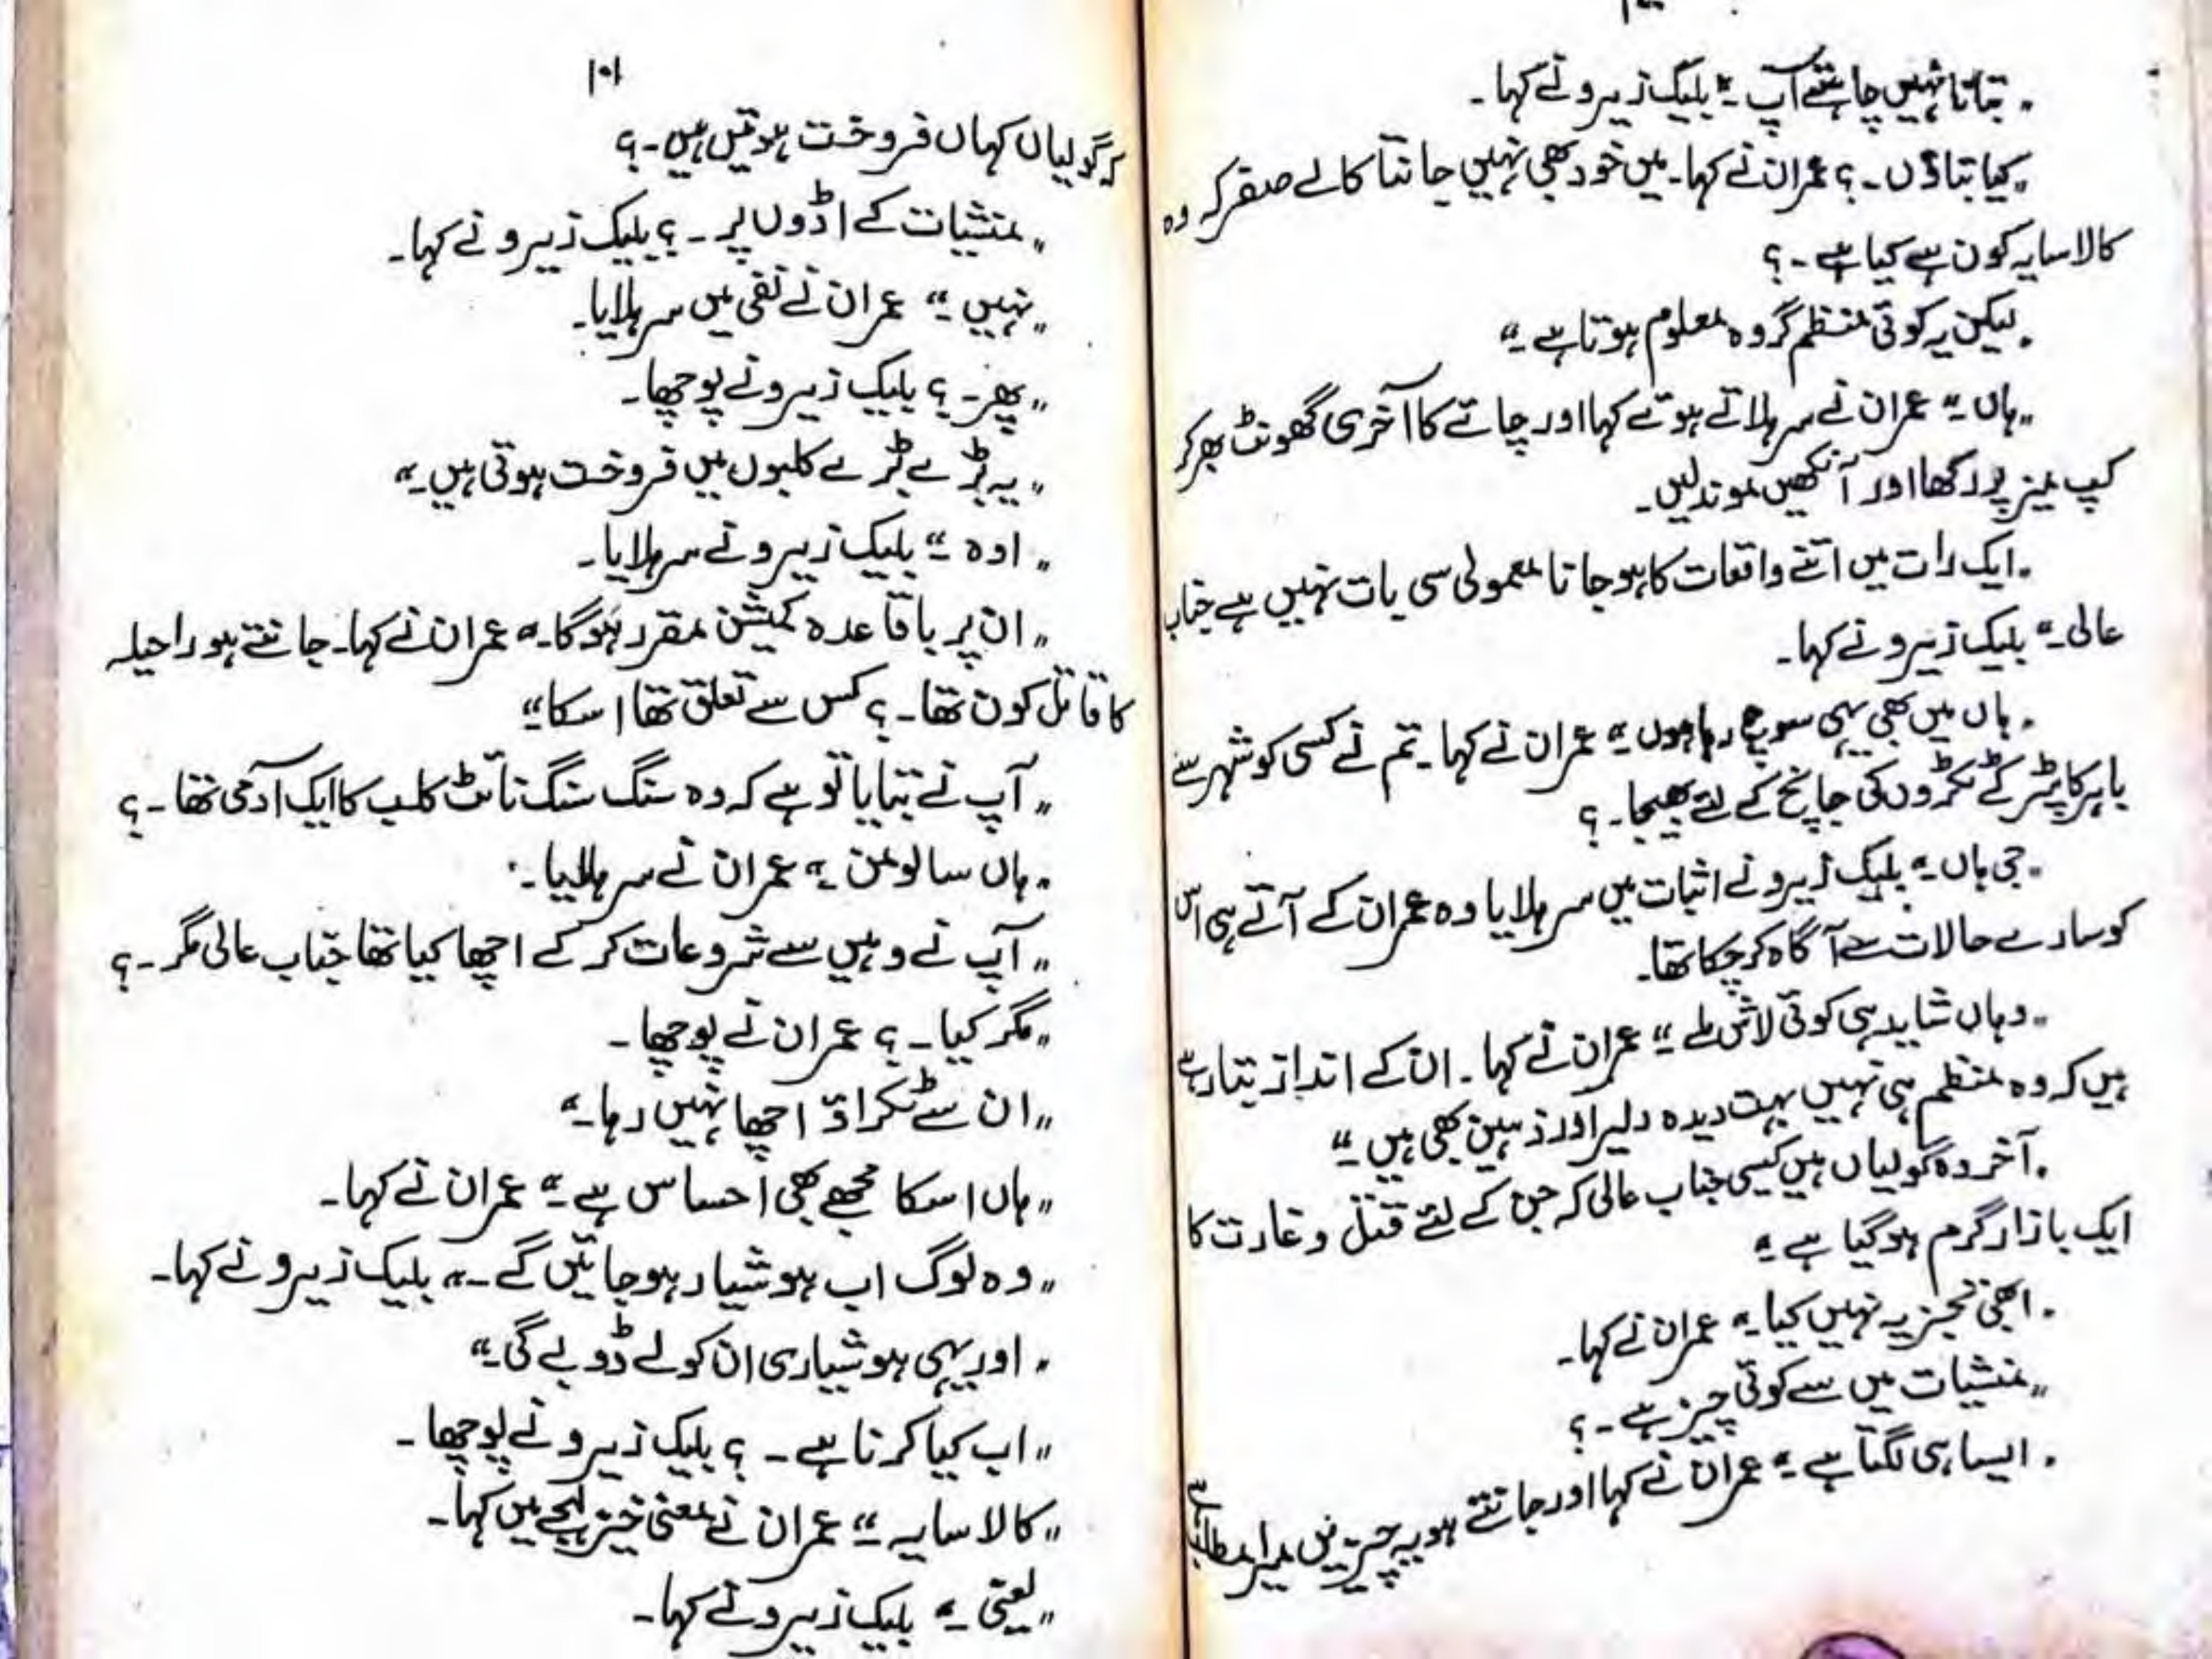 "بتانا نہیں چاہتے آپ۔" بلیک زیرو نے کہا۔
"کیا بتاؤں۔؟ عمران نے کہا۔ میں خود بھی نہیں جانتا کالے صفر کہ وہ
کالا سایہ کون ہے کیا ہے۔؟
"لیکن یہ کوئی منظم گروہ معلوم ہوتا ہے۔"
"ہاں۔" عمران نے سر ہلاتے ہوئے کہا اور چائے کا آخری گھونٹ بھر کر
کپ میز پر رکھا اور آنکھیں موند لیں۔
"ایک رات میں اتنے واقعات کا ہو جانا معمولی سی بات نہیں ہے جناب
عالی۔" بلیک زیرو نے کہا۔
"ہاں میں بھی یہی سوچ رہا ہوں۔" عمران نے کہا۔ تم نے کسی کو شہر سے
باہر کاپٹر کے ٹکڑوں کی جانچ کے لئے بھیجا۔؟
"جی ہاں۔" بلیک زیرو نے اثبات میں سر ہلایا وہ عمران کے آتے ہی اس
کو سارے حالات سے آگاہ کر چکا تھا۔
"وہاں شاید ہی کوئی لاش ملے۔" عمران نے کہا۔ ان کے انداز بتا رہے
ہیں کہ وہ منظم ہی نہیں بہت دیدہ دلیر اور ذہین بھی ہیں۔"
"آخر وہ گولیاں ہیں کیسی جناب عالی کہ جن کے لئے قتل و غارت کا
ایک بازار گرم ہو گیا ہے۔"
"ابھی تجزیہ نہیں کیا۔" عمران نے کہا۔
"منشیات میں سے کوئی چیز ہے۔؟
"ایسا ہی لگتا ہے۔" عمران نے کہا اور جانتے ہو یہ چیزیں میرا مطلب ہے
۱۰۱
کہ گولیاں کہاں فروخت ہوتیں ہیں۔؟
"منشیات کے اڈوں پر۔؟ بلیک زیرو نے کہا۔
"نہیں۔" عمران نے نفی میں سر ہلایا۔
"پھر۔؟ بلیک زیرو نے پوچھا۔
"یہ بڑے بڑے کلبوں میں فروخت ہوتی ہیں۔"
"اوہ۔" بلیک زیرو نے سر ہلایا۔
"ان پر باقاعدہ کمیشن مقرر ہوگا۔" عمران نے کہا۔ جانتے ہو راحیلہ
کا قاتل کون تھا۔؟ کس سے تعلق تھا اسکا۔"
"آپ نے بتایا تو ہے کہ وہ سنگ سنگ نائٹ کلب کا ایک آدمی تھا۔؟
"ہاں سالومن۔" عمران نے سر ہلایا۔
"آپ نے وہیں سے شروعات کر کے اچھا کیا تھا جناب عالی مگر۔؟
"مگر کیا۔؟ عمران نے پوچھا۔
"ان سے ٹکراؤ اچھا نہیں رہا۔"
"ہاں اسکا مجھے بھی احساس ہے۔" عمران نے کہا۔
"وہ لوگ اب ہوشیار ہو جائیں گے۔" بلیک زیرو نے کہا۔
"اور یہی ہوشیاری ان کو لے ڈوبے گی۔"
"اب کیا کرنا ہے۔؟ بلیک زیرو نے پوچھا۔
"کالا سایہ۔" عمران نے معنی خیز لہجے میں کہا۔
"یعنی۔" بلیک زیرو نے کہا۔